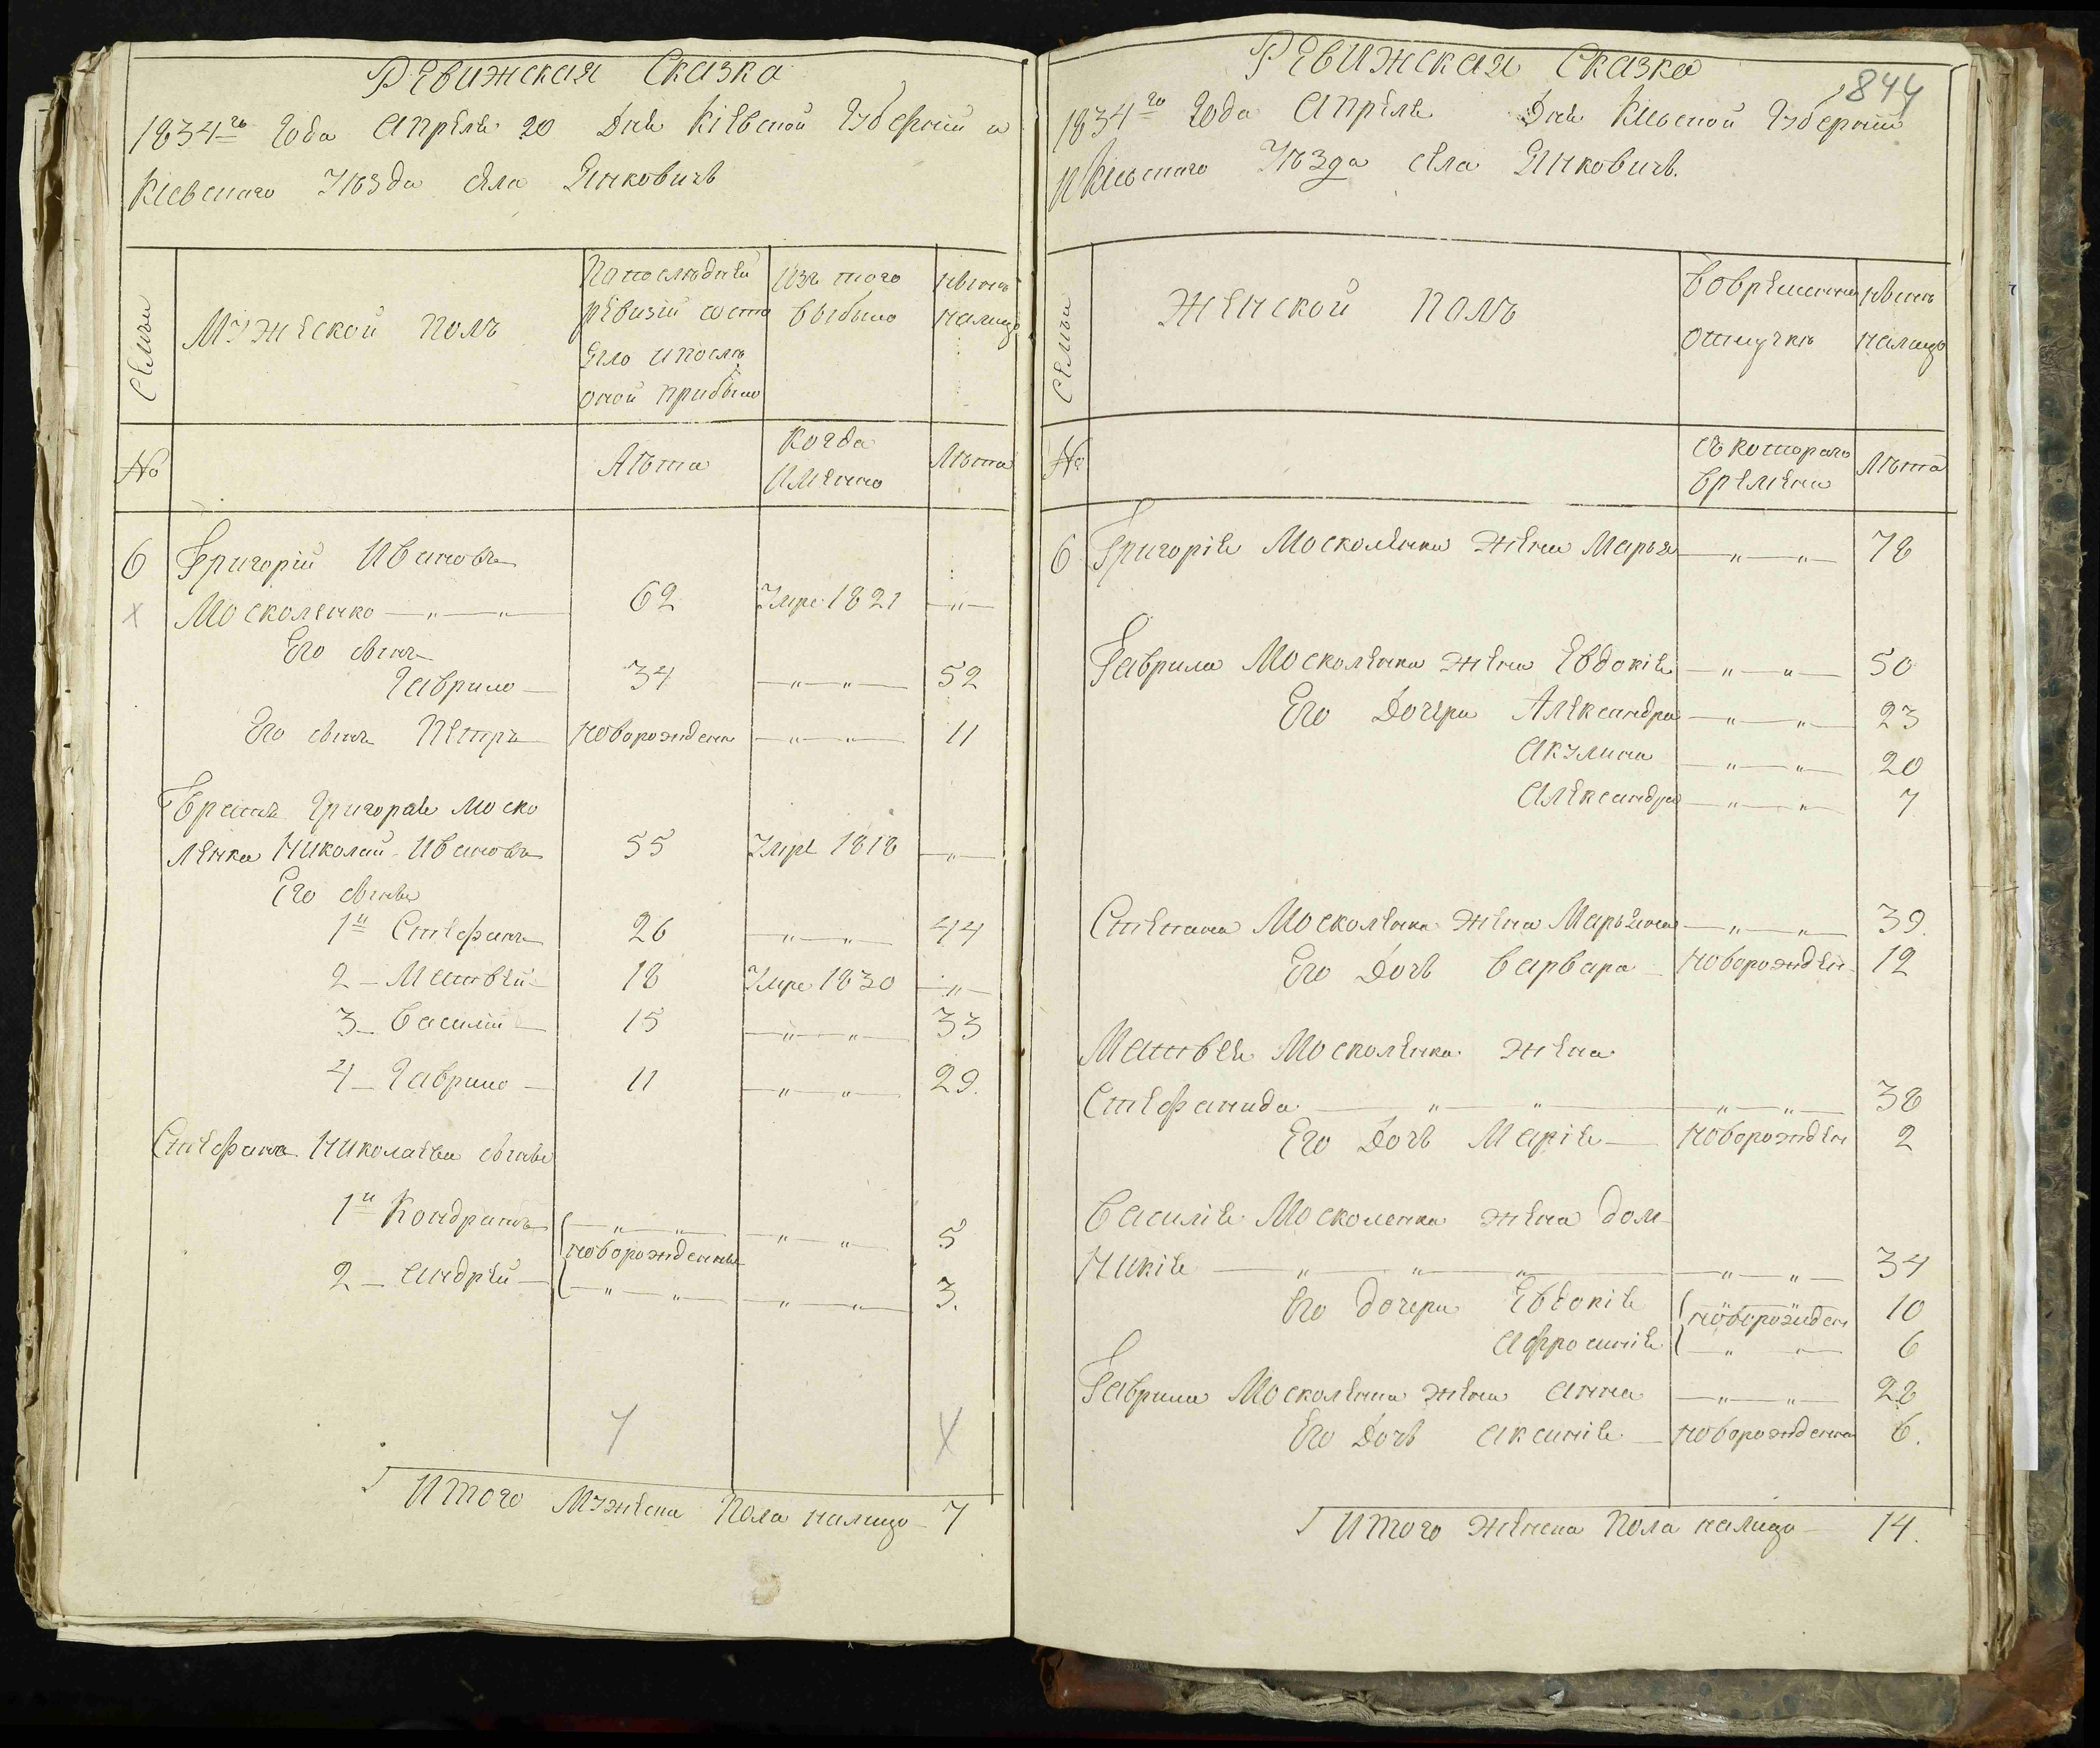 Ревижская Сказка
1834го Года Апреля 20 Дня Кіевской Губерніи и
Кіевскаго Уезда села Янковичь
Семьи
Мужеской полъ
По последней
ревизіи состо
яло и после
оной прибыло
Изъ того
выбыло
Ныне
налицо
№
Лѣта
Когда
Именно
Лѣта
6 Григорій Ивановъ
Москоленко — „ — „ 62 Умре 1821 — „ —
Его сынъ
Гаврило — 34 — „ — „ — 52
Его сынъ Петръ новорожденн — „ — „ — 11
Братъ Григорія Моско
ленка Николай Ивановъ 55 Умре 1818 — „ —
Его сынья
1й Стефанъ 26 — „ — „ — 44
2 — Матвей 18 Умре 1830 — „ —
3 — Василій — 15 — „ — „ — 33
4 — Гаврило — 11 — „ — „ — 29.
Стефана Николаева сынья
1й Кондратъ — „ — „ — „ — „ — 5
новорожденные
2 — Андрей — „ — „ — „ — „ — 3.
Итого Мужеска Пола налицо — 7
Ревижская Сказка
844
1834го Года Апреля Дня Кіевской Губерніи
и Кіевскаго Уезда села Янковичь.
Семьи
Женской полъ
Во временной
отлучке
Ныне
налицо
№
Съ котораго
времени
Лѣта
6 Григорія Москоленка жена Марья — „ — „ — 78
Гаврила Москоленка жена Евдокія — „ — „ — 50
Его Дочери Александра — „ — „ — 23
Акулина — „ — „ — 20
Александра — „ — „ — 7
Степана Москоленка жена Марьяна — „ — „ — 39.
Его Дочь Варвара — новорожден 12
Матвея Москоленка жена
Стефанида — „ — „ — „ — „ — 38
Его Дочь Марія — новорожден 2
Василія Москоленка жена Дом
никія — „ — „ — „ — „ — „ — 34
Его дочери Евдокія новорожден 10
Афросинія — „ — „ — 6
Гаврила Москоленка жена Анна — „ — „ — 28
Его Дочь Аксинія — новорожденна 6.
Итого женска Пола налицо — 14.